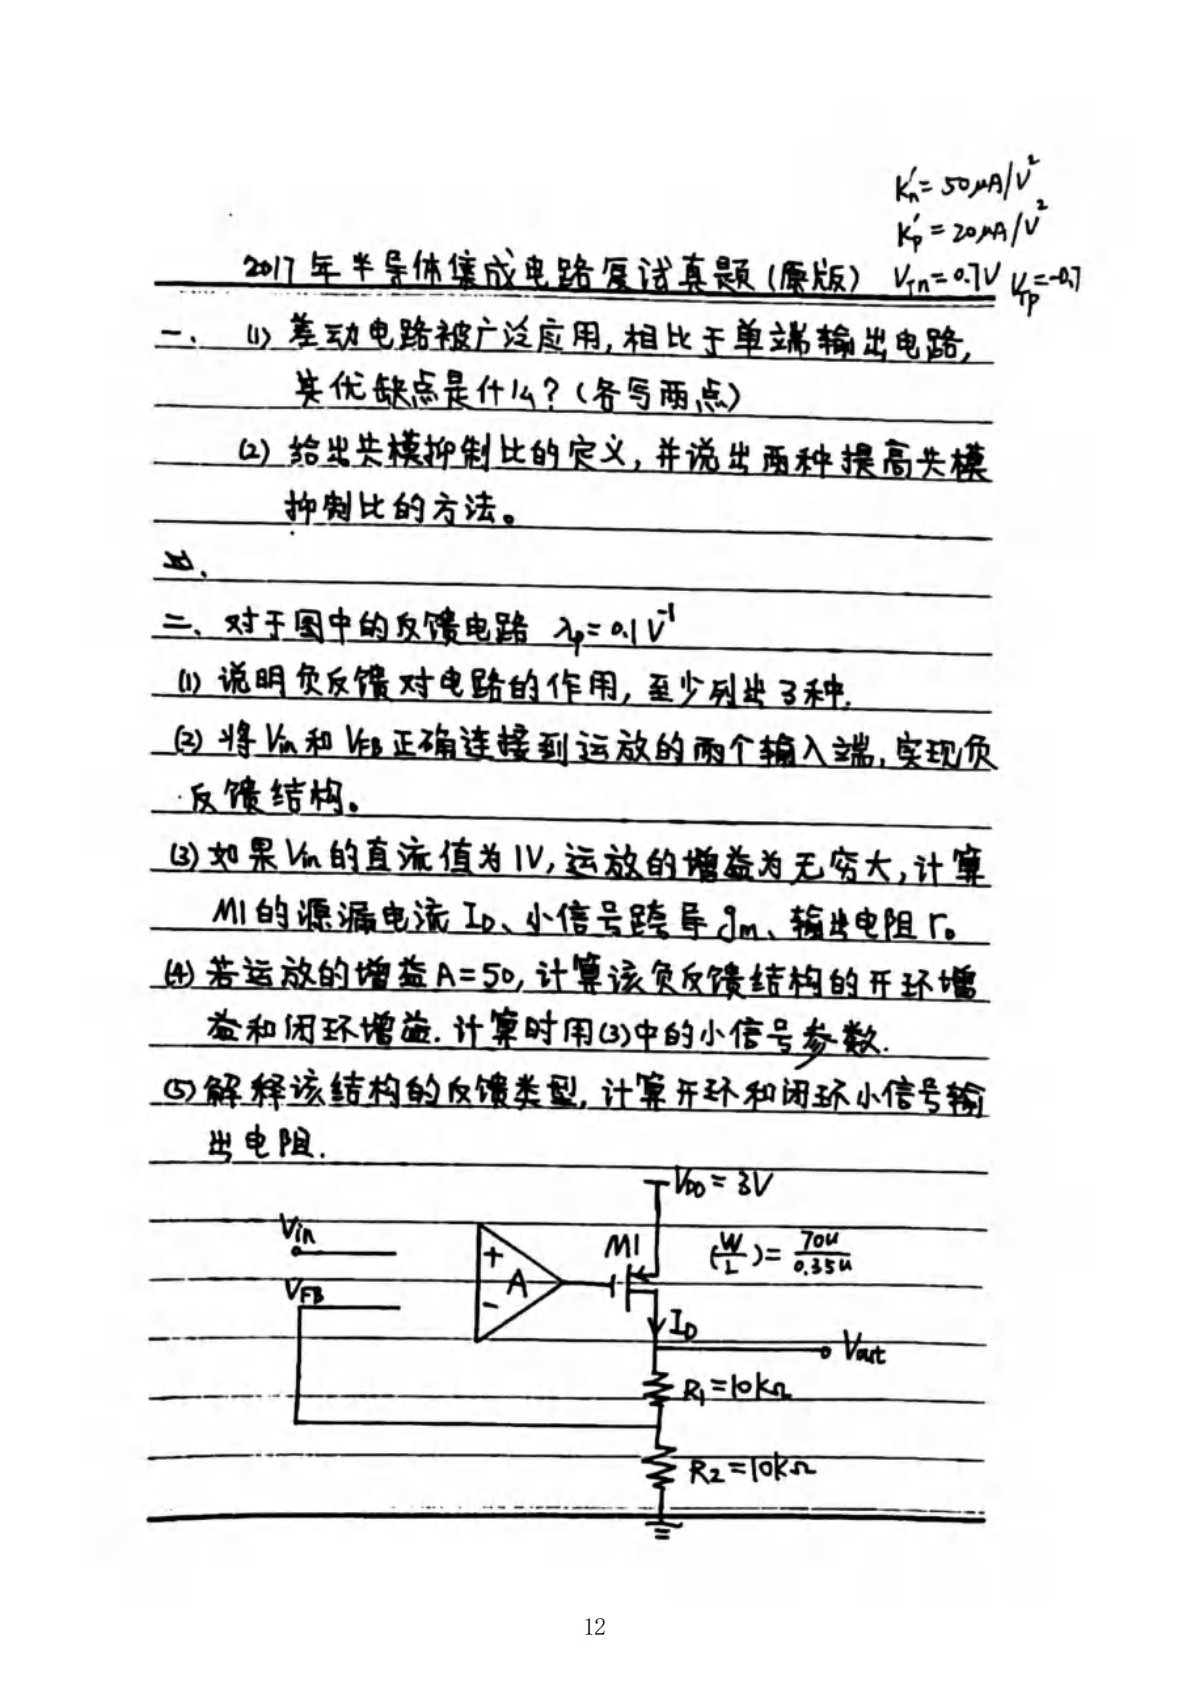 K'n = 50μA/V²
K'p = 20μA/V²
2017年半导体集成电路复试真题(原版) VTn=0.7V VTp=-0.7
一、(1) 差动电路被广泛应用,相比于单端输出电路,
其优缺点是什么?(各写两点)
(2) 给出共模抑制比的定义,并说出两种提高共模
抑制比的方法。
二、对于图中的反馈电路 λp=0.1V⁻¹
(1) 说明负反馈对电路的作用,至少列出3种.
(2) 将Vin和VFB正确连接到运放的两个输入端,实现负
反馈结构。
(3) 如果Vin的直流值为1V,运放的增益为无穷大,计算
M1的源漏电流ID、小信号跨导gm、输出电阻ro
(4) 若运放的增益A=50,计算该负反馈结构的开环增
益和闭环增益.计算时用(3)中的小信号参数.
(5) 解释该结构的反馈类型,计算开环和闭环小信号输
出电阻.
VDD=3V
Vin
+
A
-
M1
(W/L)=70u/0.35u
VFB
ID
Vout
R1=10kΩ
R2=10kΩ
12